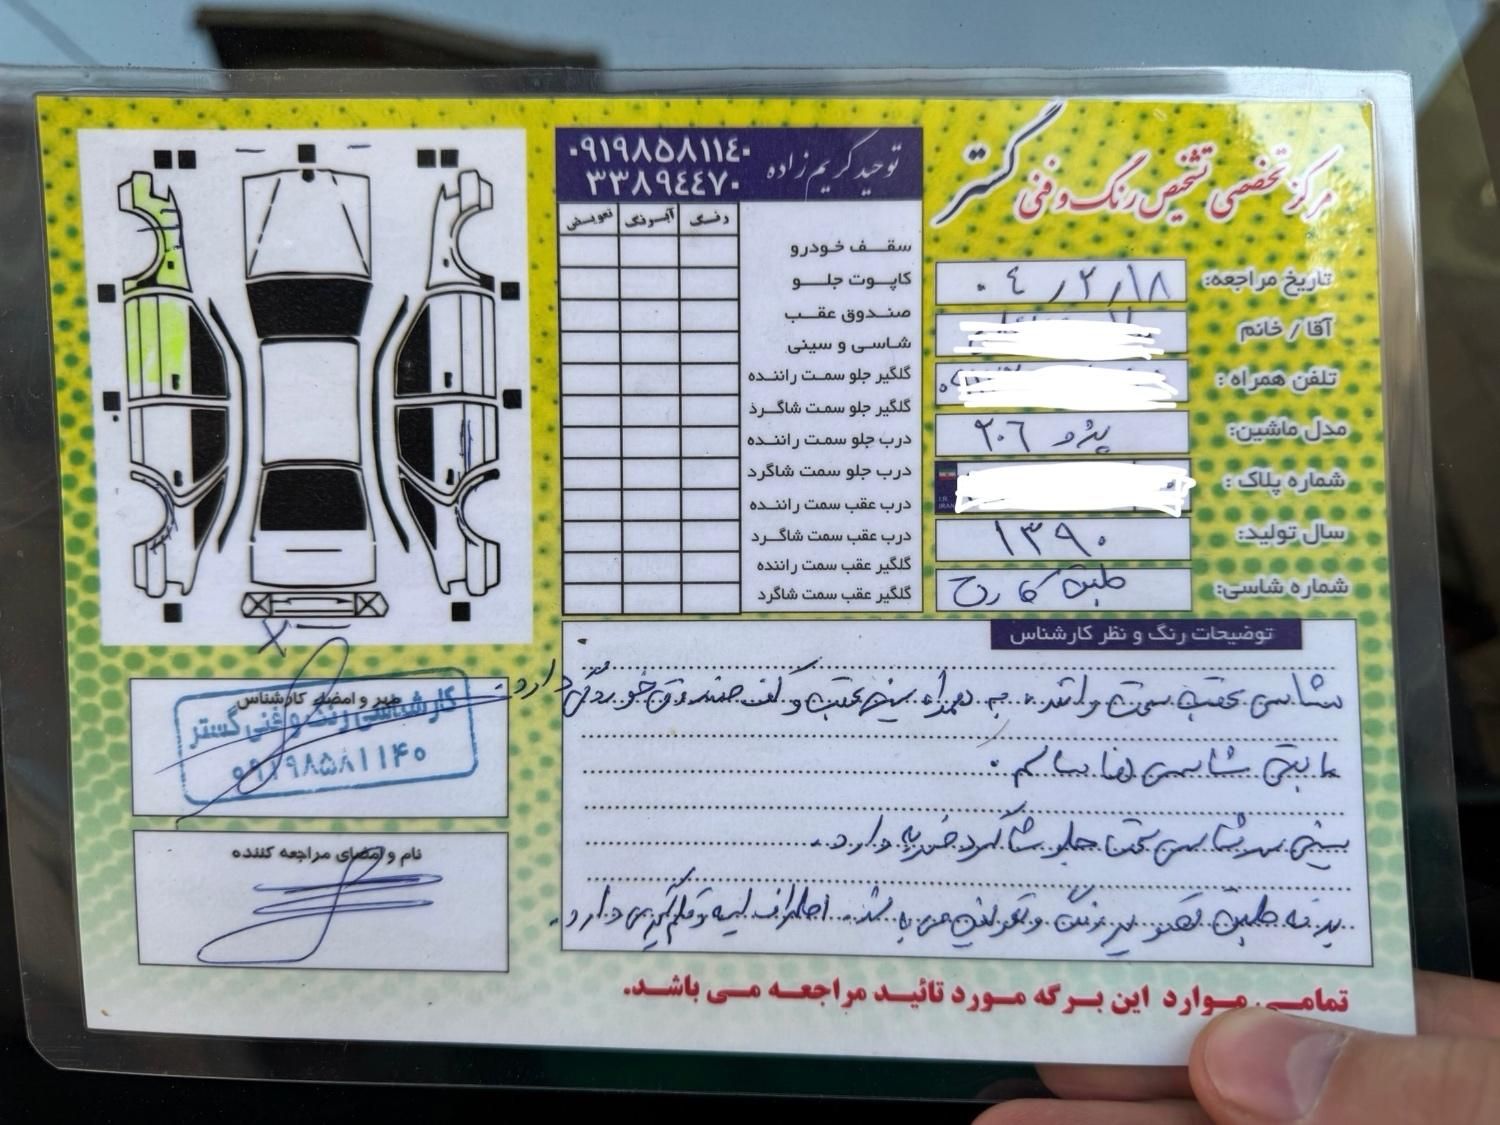 مرکز تخصصی تشخیص رنگ و فنی گستر
تاریخ مراجعه: ۰۴/۲/۱۸
آقا / خانم
تلفن همراه :
مدل ماشین: پژو ۲۰۶
شماره پلاک :
I.R.
IRAN
سال تولید: ۱۳۹۰
شماره شاسی: طبق کارت
توحید کریم زاده
۰۹۱۹۸۵۸۱۱۴۰
۳۳۸۹۴۴۷۰
رنگ آبرنگ تعویض
سقف خودرو
کاپوت جلو
صندوق عقب
شاسی و سینی
گلگیر جلو سمت راننده
گلگیر جلو سمت شاگرد
درب جلو سمت راننده
درب جلو سمت شاگرد
درب عقب سمت راننده
درب عقب سمت شاگرد
گلگیر عقب سمت راننده
گلگیر عقب سمت شاگرد
توضیحات رنگ و نظر کارشناس
شاسی عقب سمت راننده به همراه سینی عقب و کف صندوق خوردگی دارد
مابقی شاسی ها سالم.
سینی سرشاسی جلو شاگرد ضربه دارد.
بدنه طبق تصویر رنگ و تعویض می باشد. اطراف لیسه و قلم گیری دارد.
مهر و امضاء کارشناس
کارشناسی رنگ و فنی گستر
۰۹۱۹۸۵۸۱۱۴۰
نام و امضای مراجعه کننده
تمامی موارد این برگه مورد تائید مراجعه می باشد.